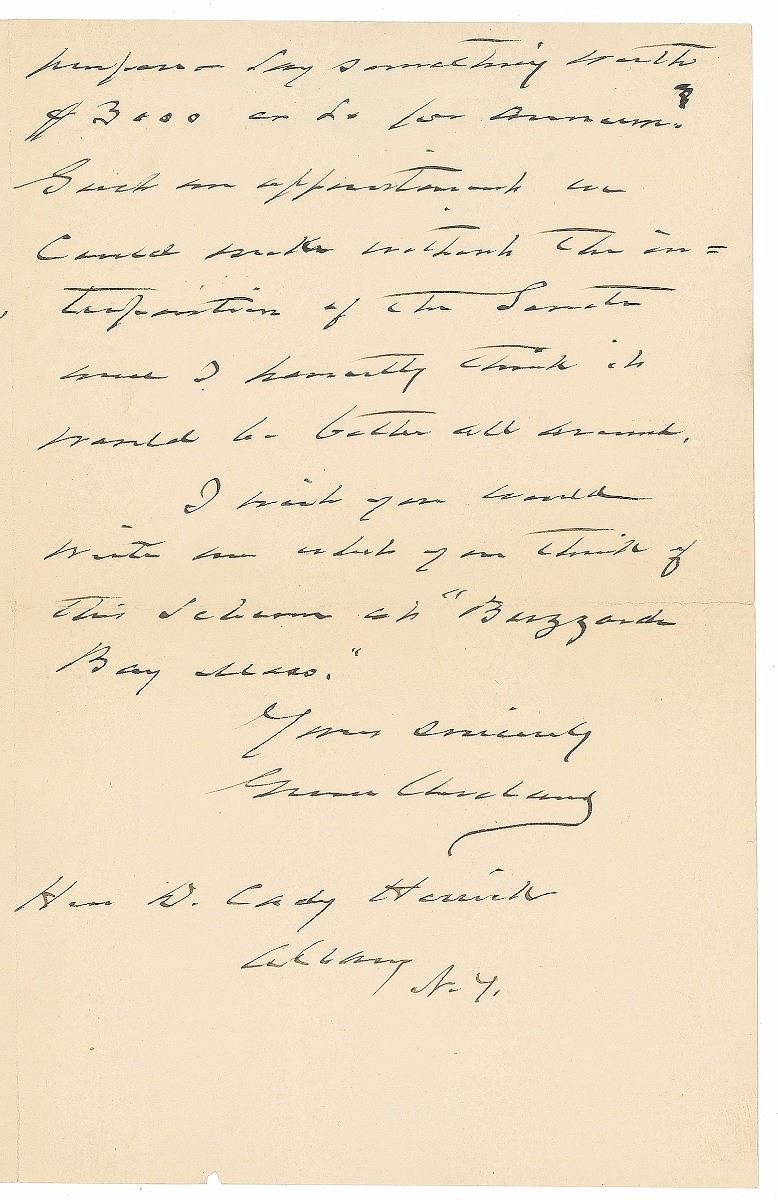 purpose – say something worth
$3000 or so per annum?
Such an appointment we
could make without the in=
terposition of the Senate
and I honestly think it
would be better all around.
I wish you would
write me what you think of
this scheme at "Buzzards
Bay Mass."
Yours sincerely
Grover Cleveland
Hon D. Cady Herrick
Albany
N.Y.